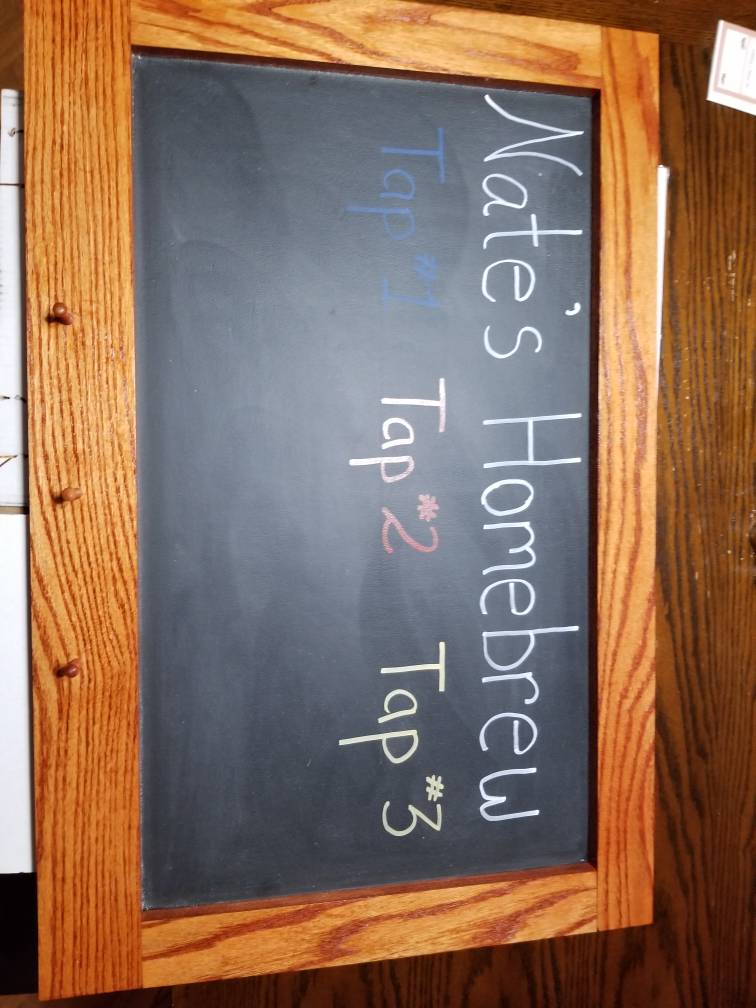 Nate's Homebrew
Tap #1 Tap #2 Tap #3